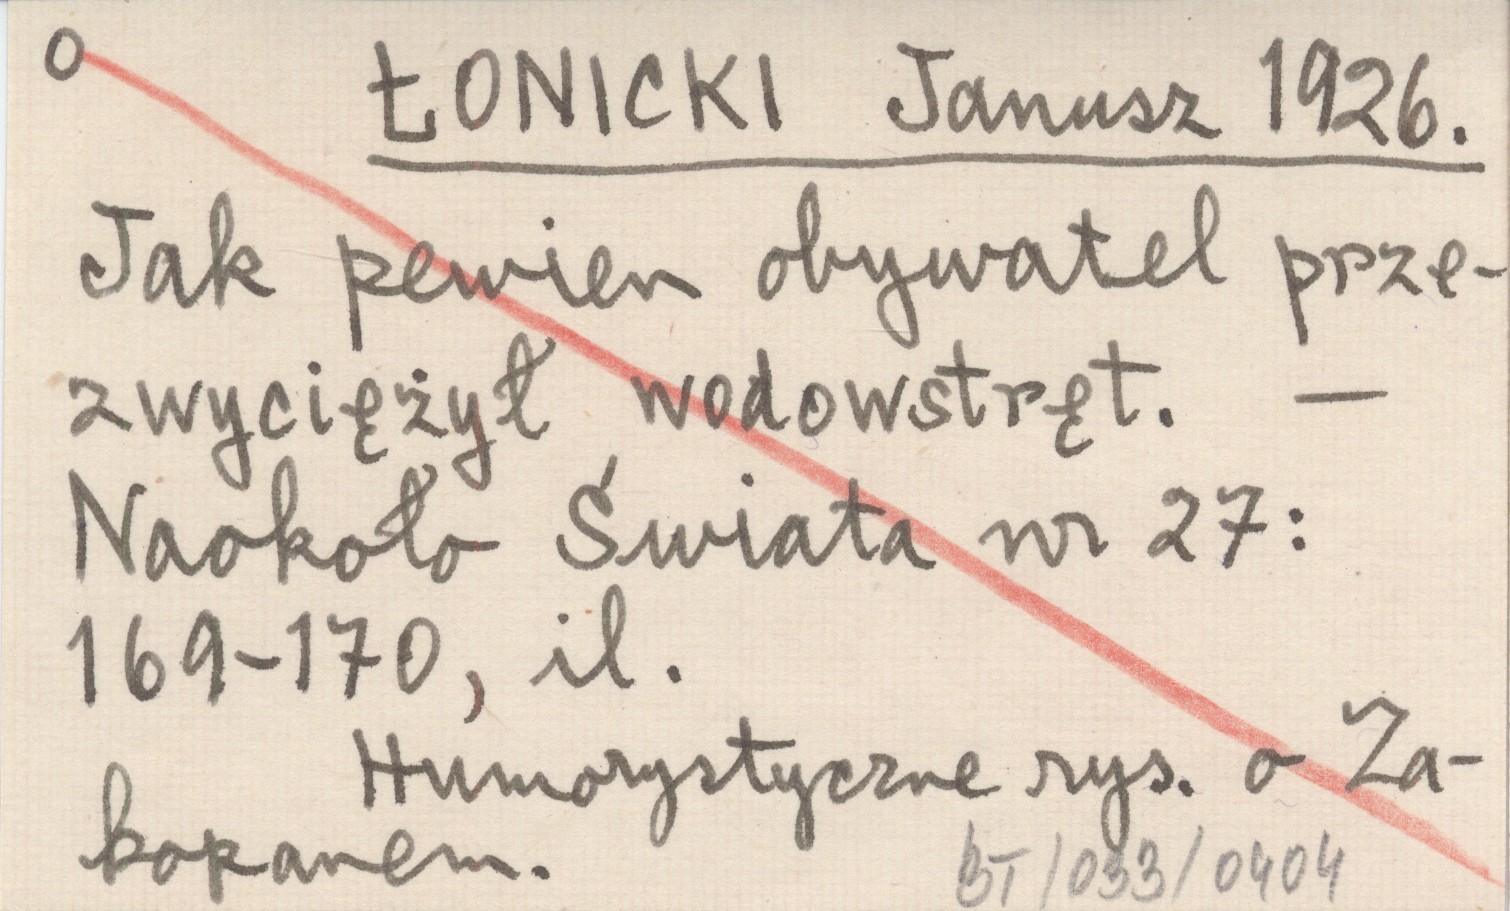 O
ŁONICKI Janusz 1926.
Jak pewien obywatel prze-
zwyciężył wodowstręt. —
Naokoło Świata nr 27:
169-170, il.
Humorystyczne rys. o Za-
kopanem.
BT/033/0404